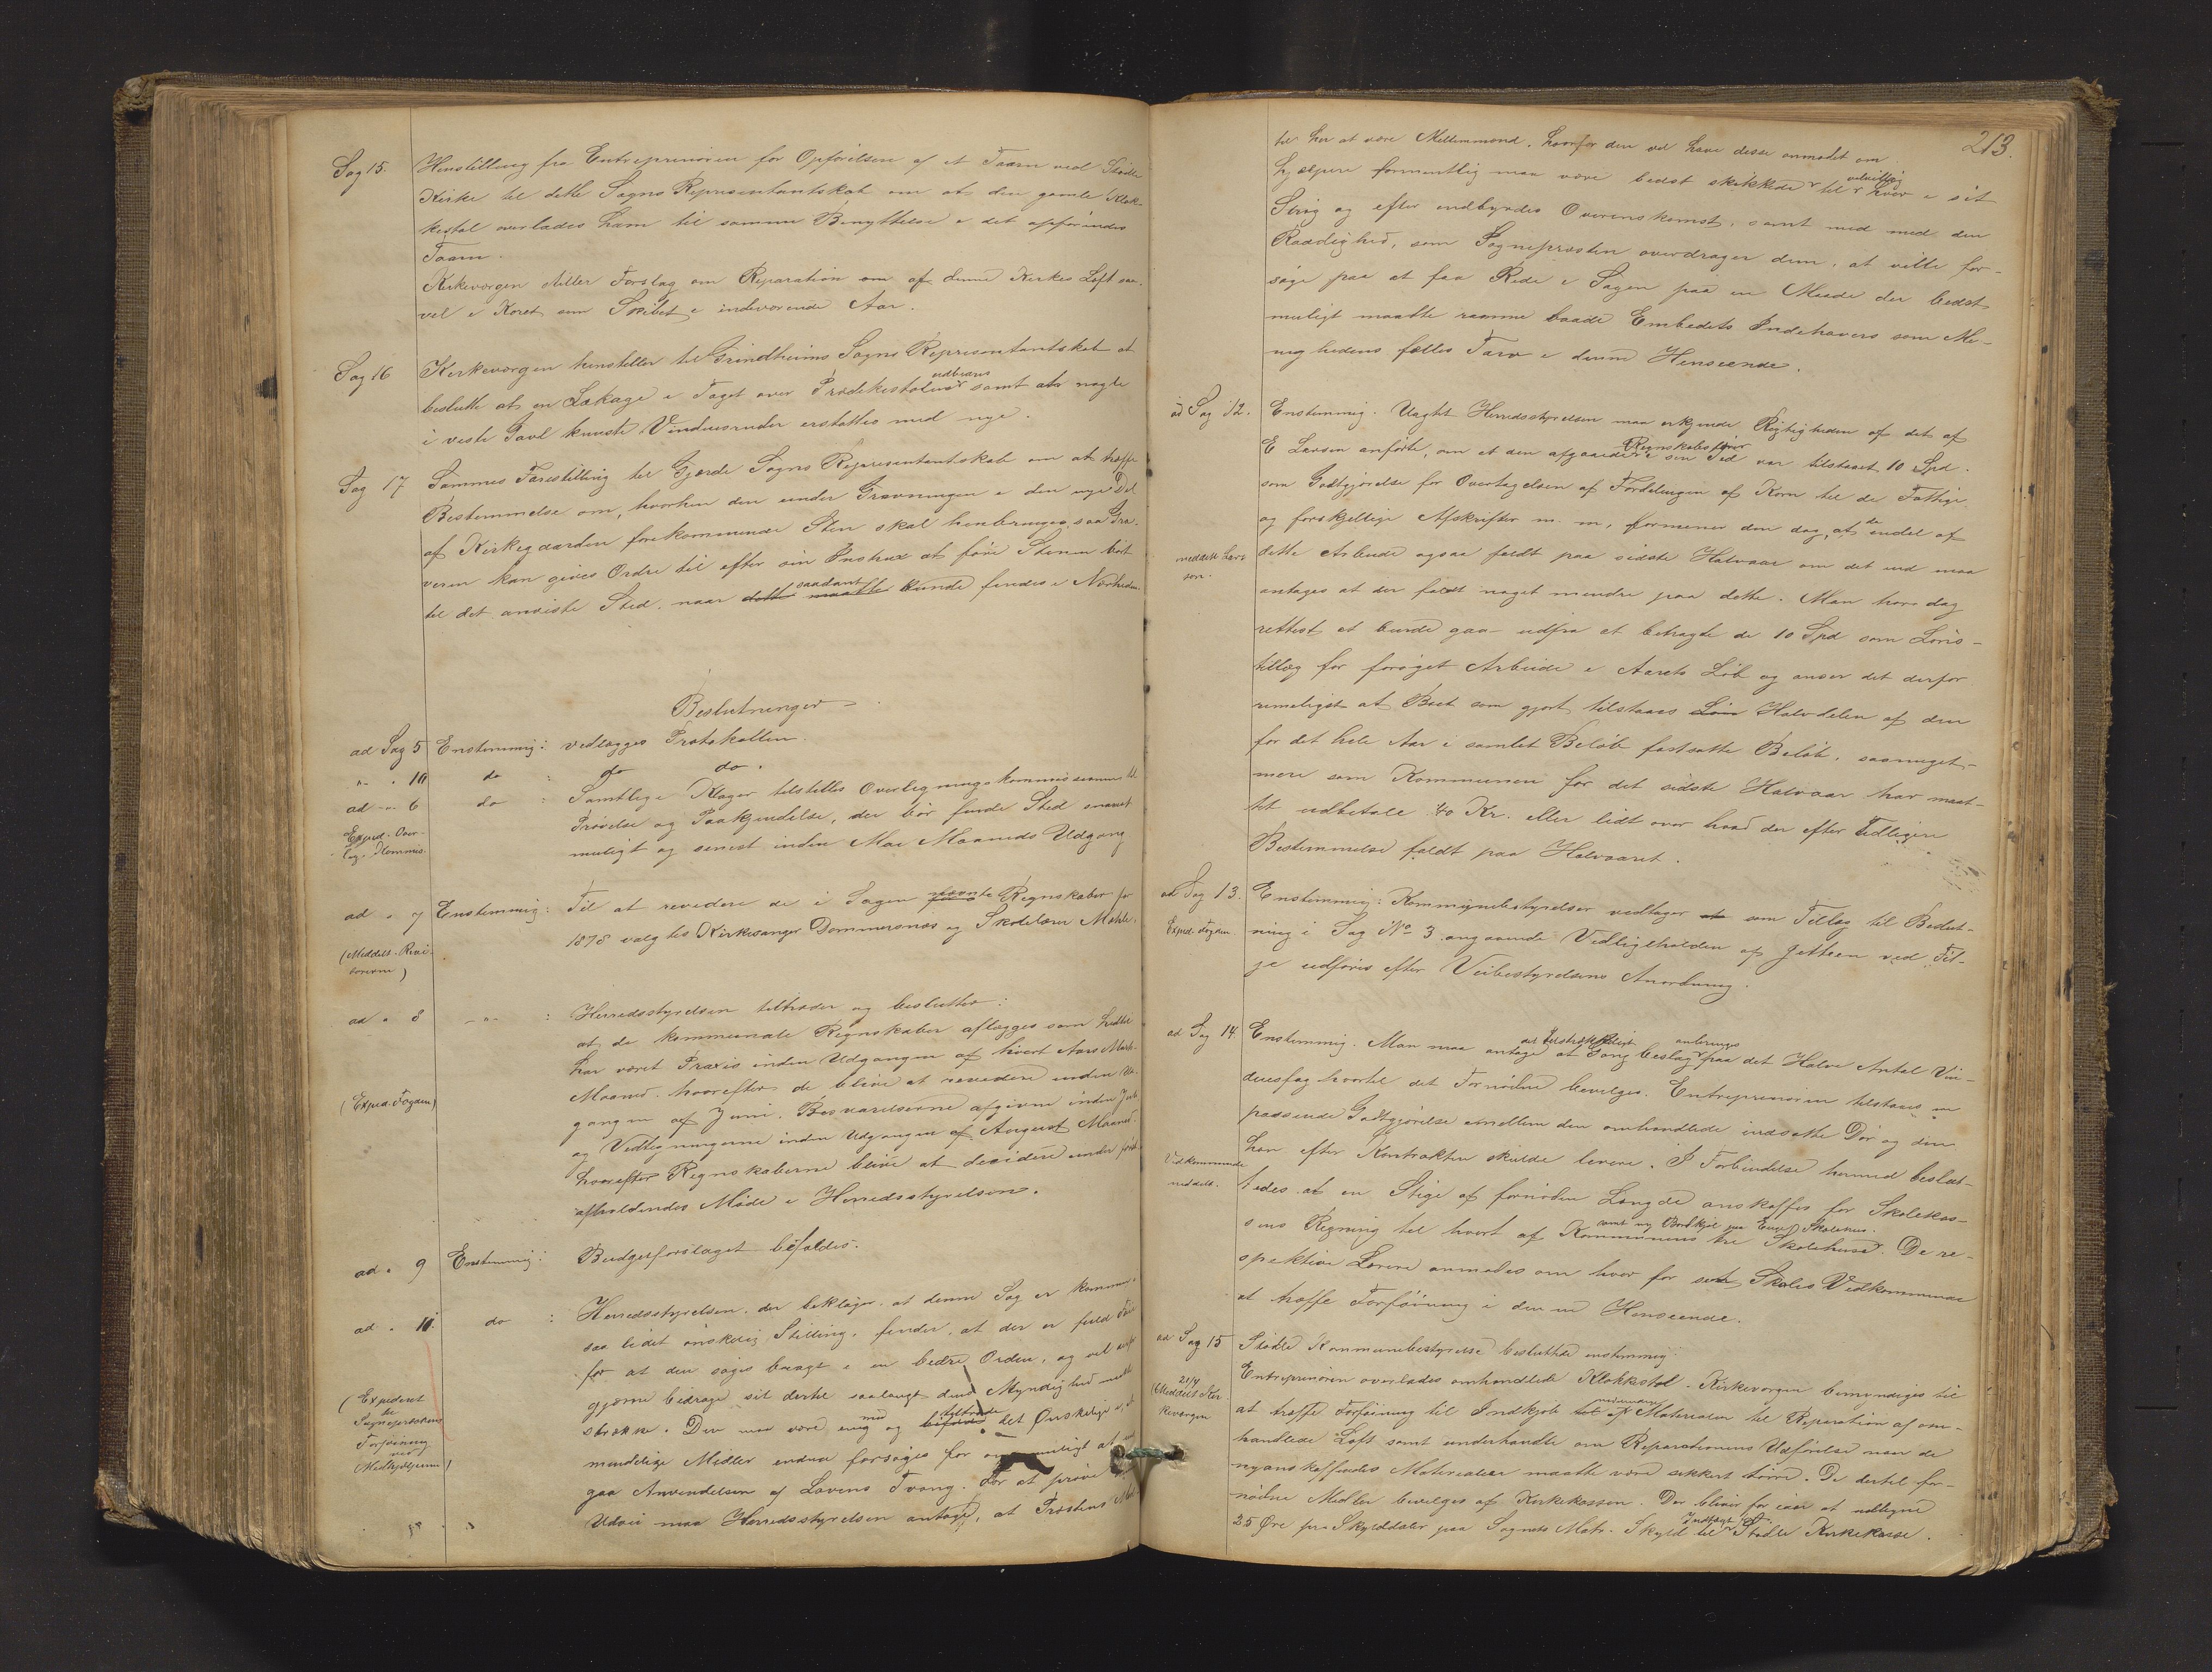 Sag 15. Henstilling fra Entreprenören for Opförelsen af et Taarn ved Stödle
Kirke til dette Sogns Repræsentantskab om at den gamle Klok-
kestol overlades ham til samme Benyttelse i det opförendes
Taarn.
Kirkevergen stiller Forslag om Reparation om af denne Kirkes Loft saa-
vel i Koret som Skibet i indeværende Aar.
Sag 16 Kirkevergen henstiller til Grindheims Sogns Repræsentantskab at
beslutte at en Lækage i Taget over Prædikestolen udbedres samt at nogle
i veste Gavl knuste Vinduesruder erstattes med nye.
Sag 17 Sammes Forestilling til Gjerde Sogns Repræsentantskab om at træffe
Bestemmelse om, hvorhen den under Gravningen i den nye Del
af Kirkegaarden forekommende Sten skal henbringes, saa Gra-
veren kan gives Ordre til efter sin Instrux at före Stenen bort
til det anviste Sted, naar dette maatte saadant kunde findes i Nærheden.
Beslutninger
ad Sag 5 Enstemmig: vedlægges Protokollen.
" " 10 do : do do.
ad " 6 do : Samtlige Klager tilstilles Overligningskommissionen til
Prövelse og Paakjendelse, der bör finde Sted snarest
muligt og senest inden Mai Maaneds Udgang
Exped. Over-
lig. Kommis.
ad " 7 Enstemmig: Til at revidere de i Sagen nævnte Regnskaber for
1878 valgtes Kirkesanger Dommersnæs og Skolelærer Mehle.
(Meddelt Revi-
sorerne)
ad " 8 - " - : Herredsstyrelsen tiltræder og beslutter:
at de kommunale Regnskaber aflægges som hidtil
har været Praxis inden Udgangen af hvert Aars Marts
Maaned, hvorefter de bliver at revidere inden Ud-
gangen af Juni. Besvarelserne afgivne inden Juli
og Vedtegningerne inden Udgangen af August Maaned.
hvorefter Regnskaberne bliver at decidere under förste
afholdendes Möde i Herredsstyrelsen.
(Exped. Fogden)
ad " 9 Enstemmig: Budgetforslaget bifaldes.
ad " 11. do : Herredsstyrelsen, der beklager, at denne Sag er kommen i
saa lidet önskelig Stilling, finder, at der er fuld
for at den söges bragt i en bedre Orden, og vil
gjerne bidrage sit dertil saalangt dens Myndighed maatte
strække. Den maa være enig med og tiltræde det Önskelige i, at
mindelige Midler endnu forsöges for om muligt at und-
gaa Anvendelsen af Lovens Tvang. For at pröve
Udvei maa Herredsstyrelsen antage, at Præstens Med-
(Expederet
til
Sognepræstens
Forföining
ved
Medhjælperne)
213.
ti her at være Mellemmænd, hvorfor den vil have disse anmodet om
hjælpere formentlig maa være bedst skikkede til velvillig hver i sit
Sogn og efter indbyrdes Overenskomst, samt med med den
Raadighed, som Sognepræsten overdrager dem, at ville for-
söge paa at faa Rede i Sagen paa en Maade der bedst
muligt maatte ramme baade Embedets Indehavers som Me-
nighedens fælles Tarv i denne Henseende.
ad Sag 12. Enstemmig. Uagtet Herredsstyrelsen maa erkjende Rigtigheden af det af
E Larsen anförte, om at den afgaaede Regnskabsförer i sin Tid var tilstaaet 10 Spd.
som Godtgjörelse for Overtagelsen af Fordelingen af Korn til de Fattige
og forskjellige Afskrifter m. m, formener den dog, at en del af
dette Arbeide ogsaa faldt paa sidste Halvaar om det end maa
antages at der faldt noget mindre paa dette. Man har dog
rettest at burde gaa udfra at betragte de 10 Spd som Löns-
tillæg for forøget Arbeide i Aarets Löb og anser det derfor
rimeligst at Boet som gjort tilstaaes Lön Halvdelen af den
for det hele Aar i samlet Belöb fastsatte Belöb, saameget
mere som Kommunen for det sidste Halvaar har maat-
tet udbetale 40 Kr. eller lidt over hvad der efter tidligere
Bestemmelse faldt paa Halvaaret.
meddelt Lar-
sen.
ad Sag 13. Enstemmig: Kommunebestyrelser vedtager at som Tillæg til Beslut-
ning i Sag No 3 angaaende Vedligeholden af Jetteen ved Fit-
je udföres efter Veibestyrelsens Anordning.
Exped. Fogden
ad Sag 14. Enstemmig. Man maa antage det tilstrækkeligt at Gang beslag anbringes paa det Halve Antal Vin-
duesfag hvortil det Fornödne bevilges. Entreprenören tilstaaes en
passende Godtgjörelse imellem den omhandlede indsatte Dör og den
han efter Kontrakten skulde levere. I Forbindelse hermed beslut-
tedes at en Stige af fornöden Længde anskaffes for Skolekas-
sens Regning til hvert af Kommunens tre Skolehuse. De re-
spektive Lærere anmodes om hver for sin Skoles Vedkommende
at træffe Forföining i denne Henseende.
Vedkommende
meddelt.
ad Sag 15 Stödle Kommunebestyrelse besluttede enstemmig:
Entreprenören overlades omhandlede Klokkestol. Kirkevergen bemyndiges til
at træffe Forföining til Indkjöb af Materialer til Reparation af om-
handlede Loft samt underhandle om Reparationens Udförelse naar de
nyanskaffendes Materialier maatte være sikkert törre. De dertil for-
nödne Midler bevilges af Kirkekassen. Der bliver for iaar at udligne
25 Öre pr. Skylddaler paa Sognets Matr. Skyld til Indtægt for Stödle Kirkekasse.
21/4
(Meddelt Kir-
kevergen